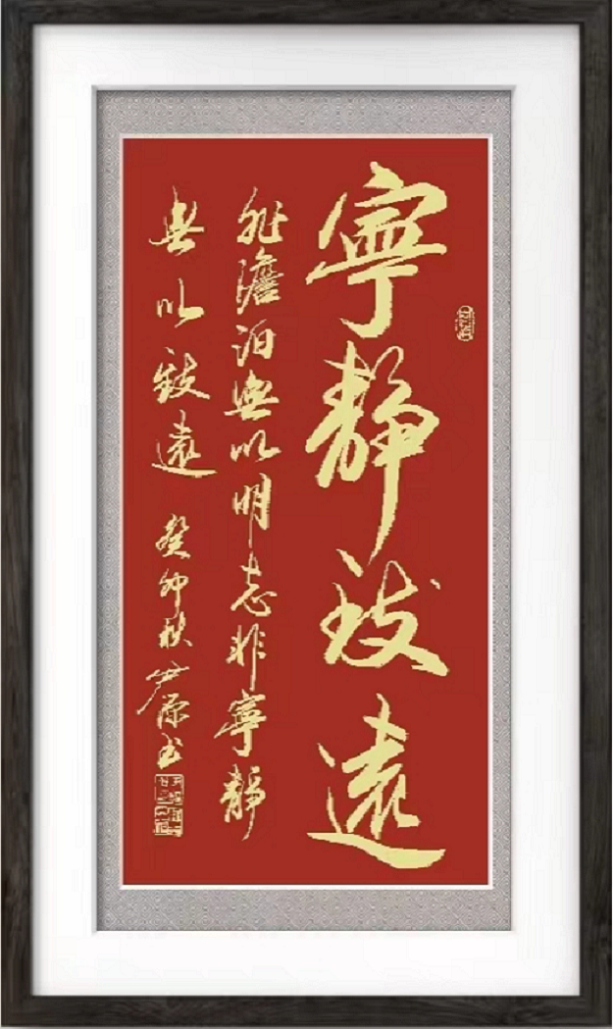 寧靜致遠
非澹泊無以明志非寧靜
無以致遠 癸卯秋